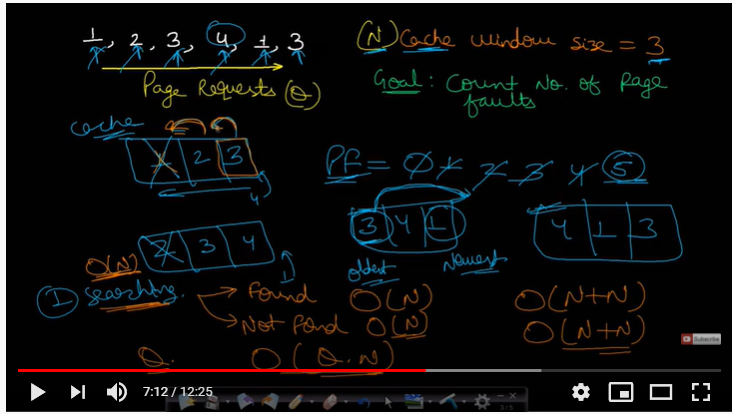 1, 2, 3, 4, 1, 3
Page Requests (Q)
(N) Cache window size = 3
Goal: Count No. of Page
faults
cache
1 2 3
4
PF = 0 1 2 3 4 5
2 3 4
1
3 4 1
oldest Newest
4 1 3
O(N)
1 Searching.
Found O(N) O(N+N)
Not Fond O(N) O(N+N)
Q. O(Q.N)
Subscribe
7:12 / 12:25
3/5